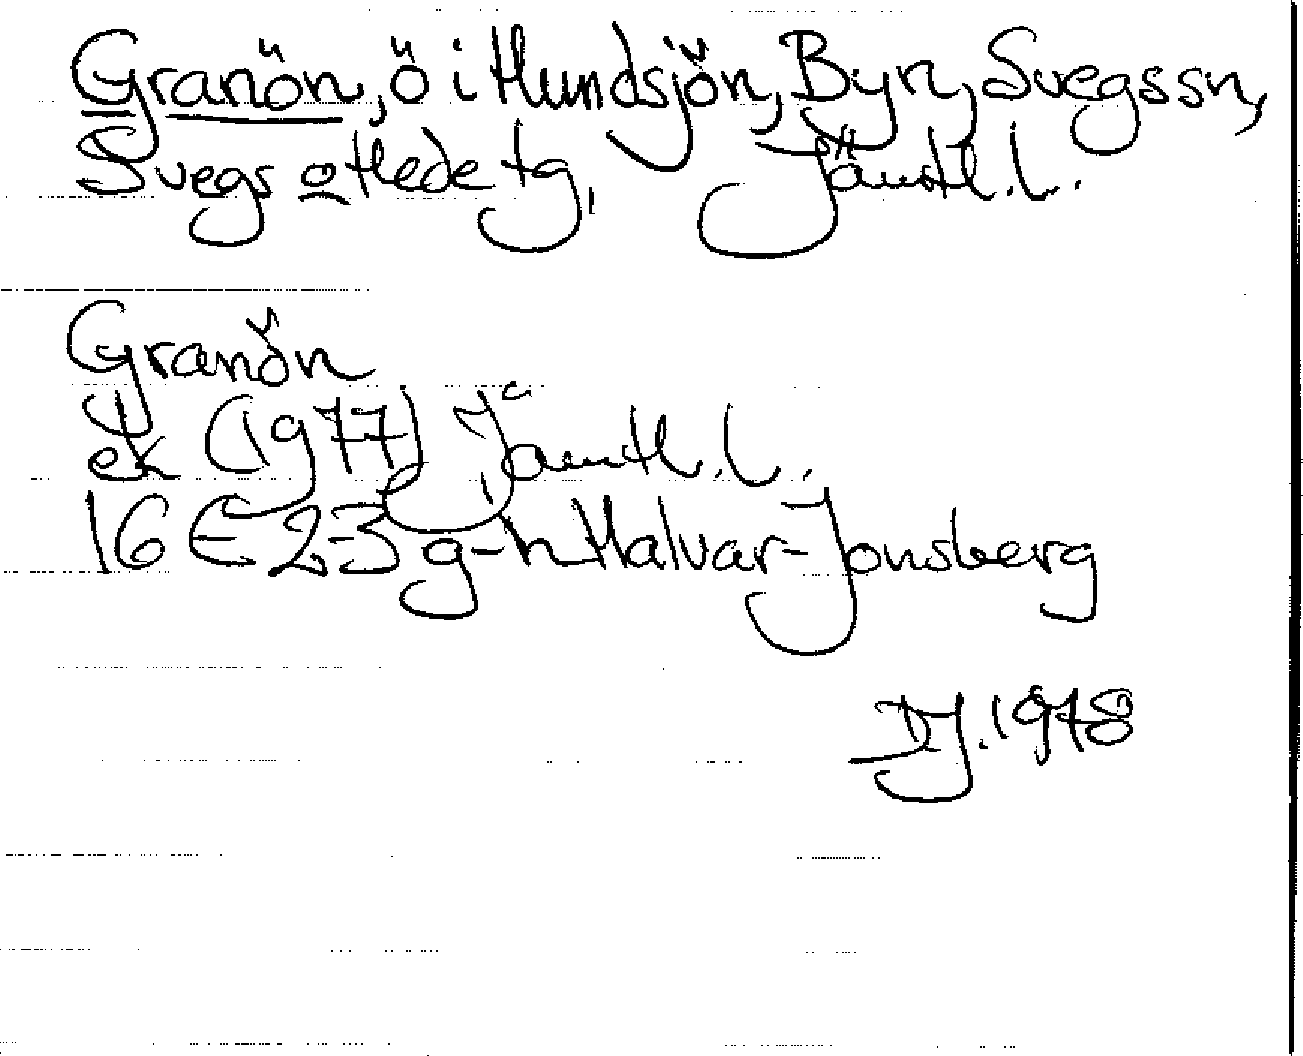 Granön, ö i Hundsjön, Byn, Svegs sn,
Svegs o Hede tg, Jämtl. l.
Granön
ek (1977) Jämtl. l.
16 E 2-3 g-h Halvar-Jonsberg
DJ. 1978